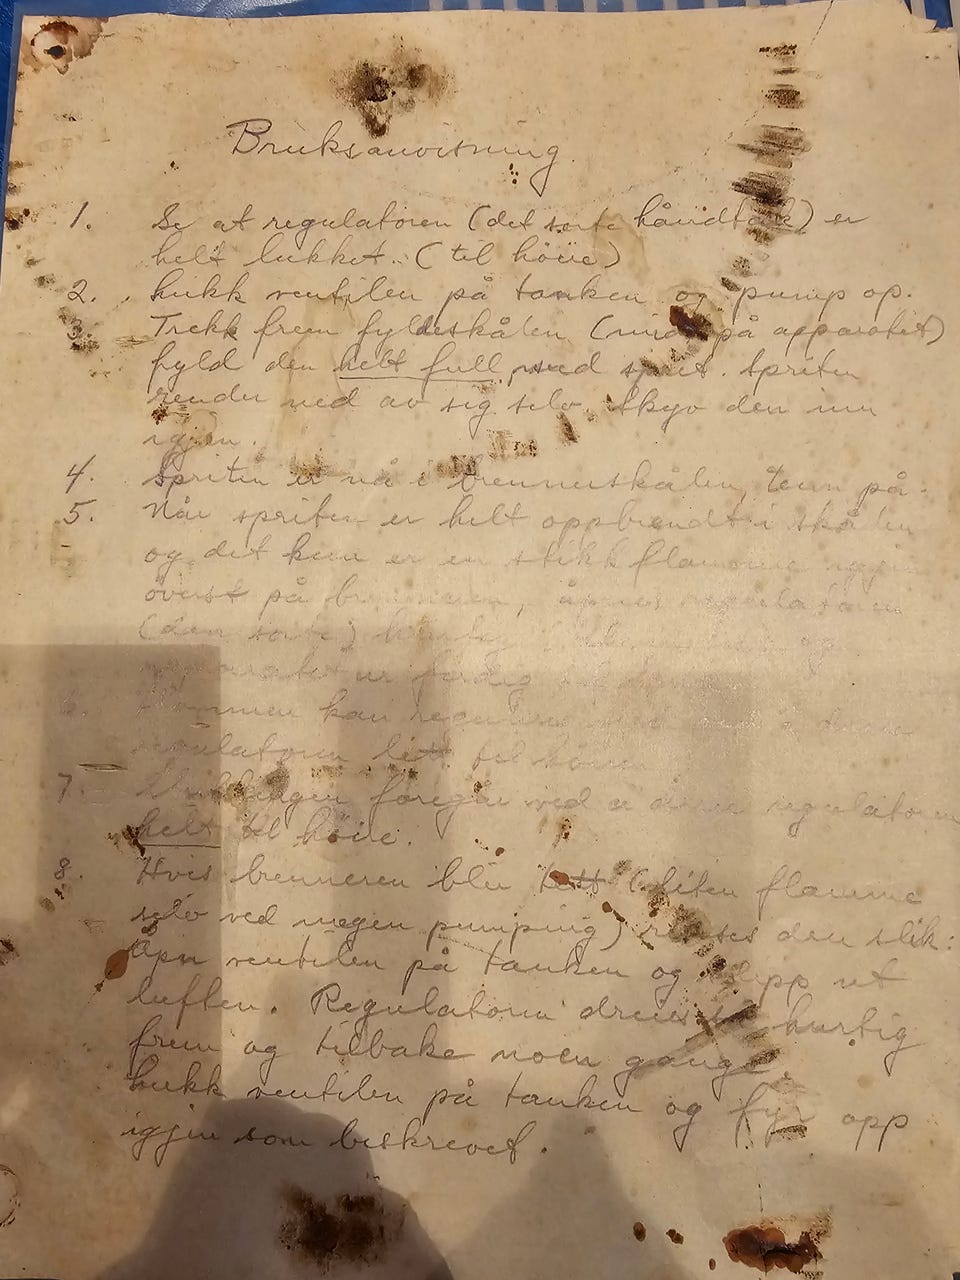 Bruksanvisning
1. Se at regulatoren (det sorte håndtak) er
helt lukket. (til höire)
2. Lukk ventilen på tanken og pump op.
3. Trekk frem fyldeskålen (midt på apparatet)
fyld den helt full med sprit. Spriten
render ned av sig selv. Skyv den inn
igjen.
4. Spriten er nå i brennerskålen, tenn på.
5. Når spriten er helt oppbrendt i skålen
og det kun er en stikkflamme igjen
överst på brenneren, åpnes regulatoren
(den sorte) hurtig og
apparatet er ferdig til
6. Flammen kan reguleres ved å dreie
regulatoren litt til höire.
7. Slukkingen foregår ved å dreie regulatoren
helt til höire.
8. Hvis brenneren blir tett (liten flamme
selv ved megen pumping) renses den slik:
Åpn ventilen på tanken og slipp ut
luften. Regulatoren dreies så hurtig
frem og tilbake noen gange.
Lukk ventilen på tanken og fyr opp
igjen som beskrevet.